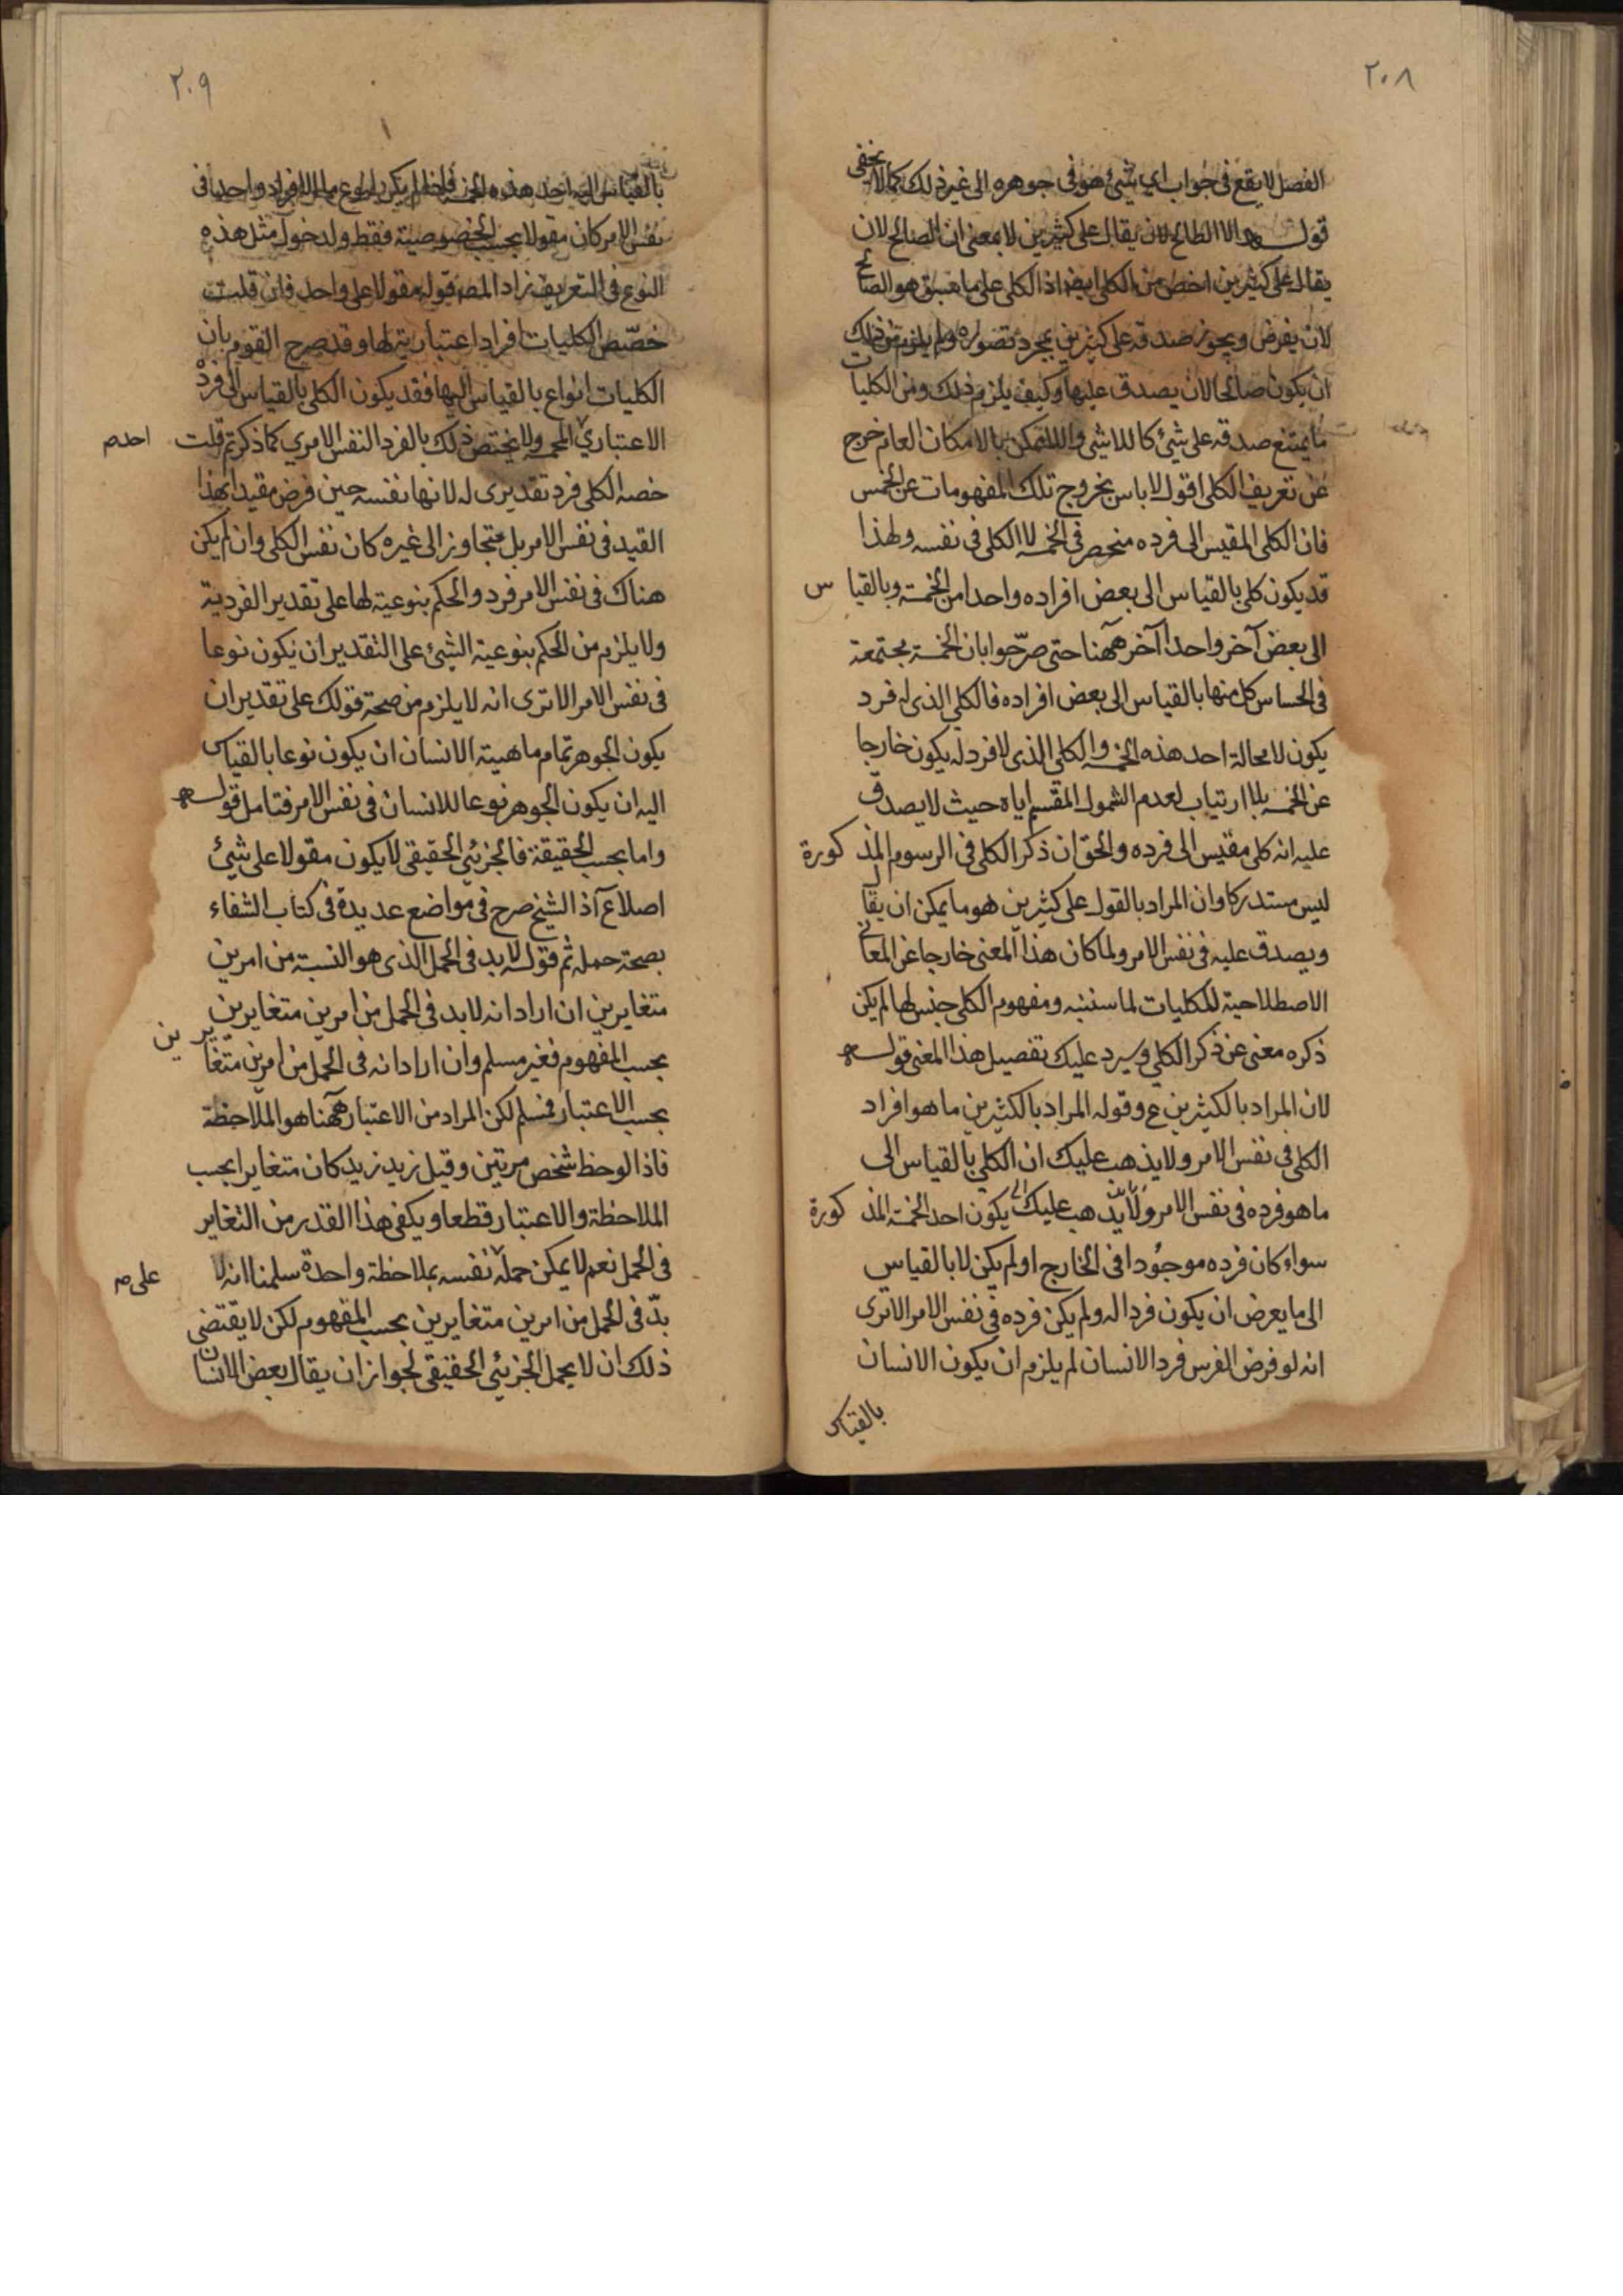 ٢٠٨
الفصل لا يقع في جواب اي شيئ هو في جوهره الى غير ذلك كما لا يخفى
قوله الا الصالح لان يقال على كثيرين لا بمعنى ان الصالح لان
يقال على كثيرين اخص من الكلى ايضا اذ الكلى على ما سبق هو الصالح
لان يفرض ويجوز صدقه على كثيرين بمجرد تصوره ولم يلزم من ذلك
ان يكون صالحا لان يصدق عليها وكيف يلزم ذلك ومن الكليات
ما يمتنع صدقه على شيئ كاللاشئ واللاممكن بالامكان العام خرج
عن تعريف الكلى اقول لا باس بخروج تلك المفهومات عن الخمس
فان الكلى المقيس الى فرده منحصر في الخمسه لا الكلى في نفسه ولهذا
قد يكون كلى بالقياس الى بعض افراده واحدا من الخمسة وبالقياس
الى بعض آخر واحدا آخر ههنا حتى صرّحوا بان الخمسة مجتمعة
في الحساس كل منها بالقياس الى بعض افراده فالكلي الذى له فرد
يكون لا محالة احد هذه الخمسه والكلي الذى لا فرد له يكون خارجا
عن الخمسه بلا ارتياب لعدم الشمول المقسم اياه حيث لا يصدق
عليه انه كلى مقيس الى فرده والحق ان ذكر الكلى في الرسوم المذكورة
ليس مستدركا وان المراد بالقول على كثيرين هو ما يمكن ان يقال
ويصدق عليه في نفس الامر ولما كان هذا المعنى خارجا عن المعانى
الاصطلاحية للكليات لما سننبه ومفهوم الكلى جنس لها لم يكن
ذكره مغنى عن ذكر الكلي وسيرد عليك تفصيل هذا المعنى قوله
لان المراد بالكثيرين ع وقوله المراد بالكثيرين ما هو افراد
الكلى في نفس الامر ولا يذهب عليك ان الكلي بالقياس الى
ما هو فرده في نفس الامر ولا يذهب عليك يكون احد الخمسة المذكورة
سواء كان فرده موجودا في الخارج او لم يكن لا بالقياس
الى ما يعرض ان يكون فردا له ولم يكن فرده في نفس الامر الا ترى
انه لو فرض الفرس فردا لانسان لم يلزم ان يكون الانسان
بالقياس
٢٠٩
بالقياس اليه احد هذه الخمسة فاذا لم يكن لنوع ما الا فرد واحد في
نفس الامر كان مقولا بحسب الخصوصية فقط ولدخول مثل هذه
النوع في التعريف زاد المصـ قوله مقولا على واحد فان قلت
خصّص الكليات افراد اعتبارية لها وقد صرح القوم بان
الكليات انواع بالقياس اليها فقد يكون الكلى بالقياس الى فرده
الاعتباري الخمسه ولا يختص ذلك بالفرد النفس الامري كما ذكرتم قلت
احد صـ
خصه الكلى فرد تقديرى له لانها نفسه حين فرض مقيدا بهذا
القيد في نفس الامر بل متجاوز الى غيره كان نفس الكلى وان لم يكن
هناك في نفس الامر فرد والحكم بنوعيته لها على تقدير الفردية
ولا يلزم من الحكم بنوعية الشيئ على التقدير ان يكون نوعا
في نفس الامر الا ترى انه لا يلزم من صحة قولك على تقدير ان
يكون الجوهر تمام ماهية الانسان ان يكون نوعا بالقياس
اليه ان يكون الجوهر نوعا للانسان في نفس الامر فتامل قوله
واما بحسب الحقيقة فالجزئي الحقيقى لا يكون مقولا على شيئ
اصلا ع آذ الشيخ صرح في مواضع عديدة في كتاب الشفاء
بصحة حمله ثم قوله لا بد في الحمل الذى هو النسبة من امرين
متغايرين ان اراد انه لا بد في الحمل من امرين متغايرين
بحسب المفهوم فغير مسلم وان اراد انه في الحمل من امرين متغايرين
بحسب الاعتبار فمسلم لكن المراد من الاعتبار ههنا هو الملاحظة
فاذا لوحظ شخص مرتين وقيل زيد زيد كان متغايرا بحسب
الملاحظة والاعتبار قطعا ويكفى هذا القدر من التغاير
في الحمل نعم لا يمكن حمله نفسه بملاحظة واحدة سلمنا انه لا
على صـ
بدّ في الحمل من امرين متغايرين بحسب المفهوم لكن لا يقتضى
ذلك ان لا يحمل الجزئي الحقيقى لجواز ان يقال بعض الانسان